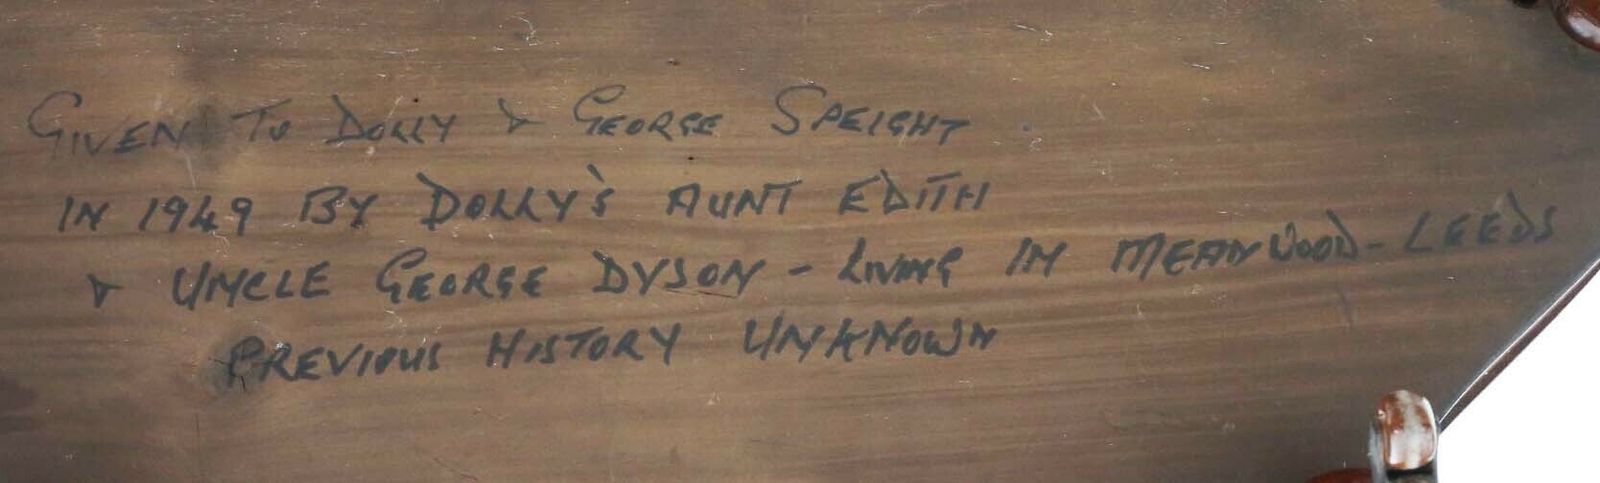 GIVEN TO DOLLY & GEORGE SPEIGHT
IN 1949 BY DOLLY'S AUNT EDITH
& UNCLE GEORGE DYSON - LIVING IN MEANWOOD - LEEDS
PREVIOUS HISTORY UNKNOWN